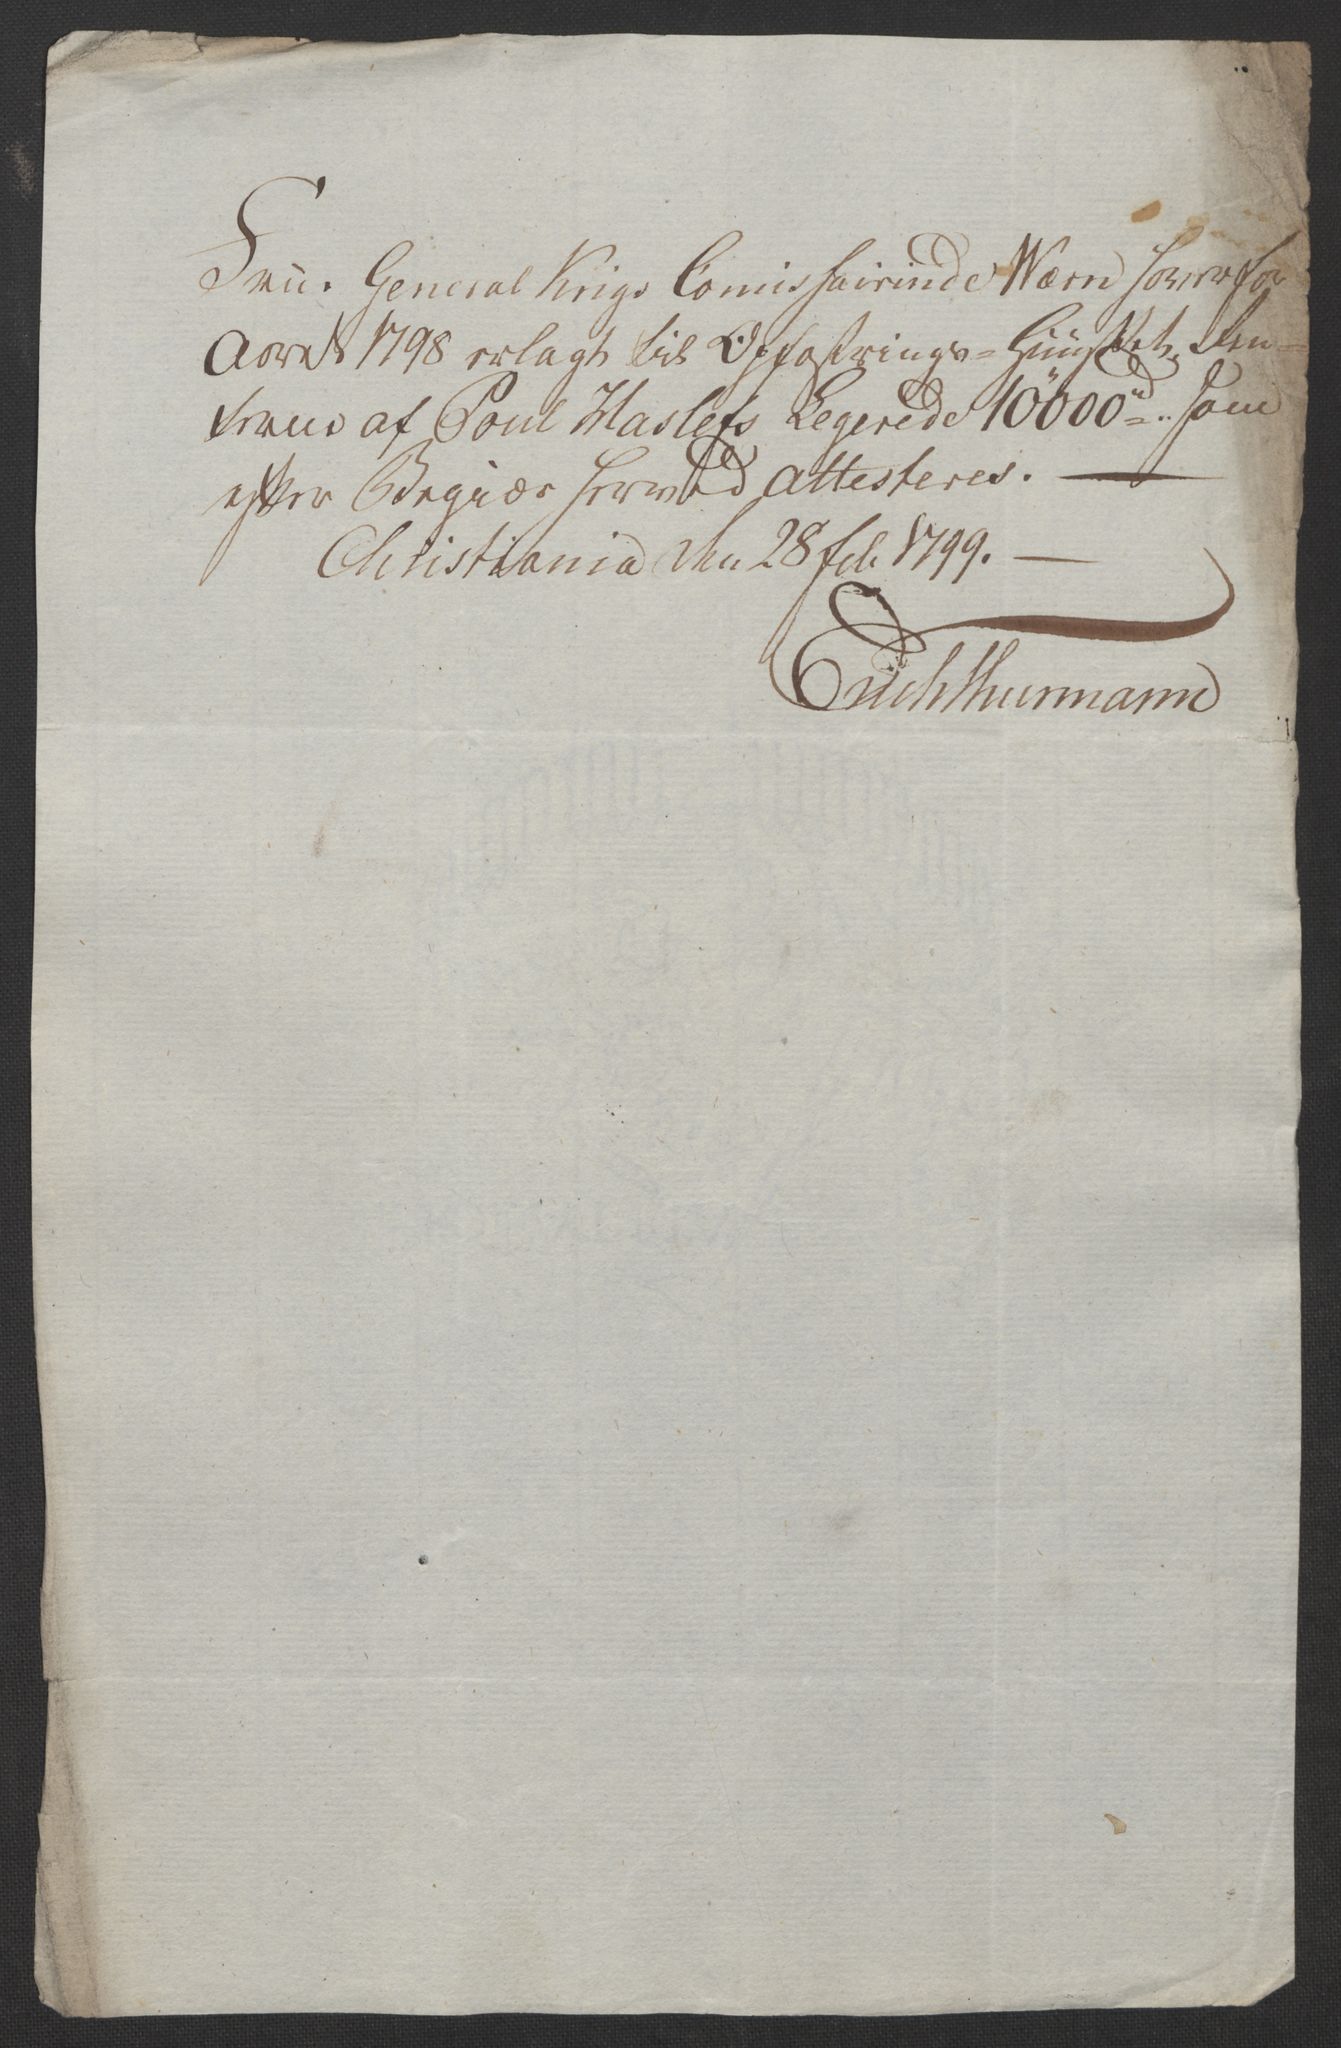 Frü. General Krigs Comissairinde Wærn haver for
Aaret 1798 erlagt til Opfostrings-Hüüset, Ren-
terne af Poul Haslefs Legerede 10000 rd.. som
efter Begiær herved attesteres. —
Christiania den 28 feb 1799. —
Erich Thurmann